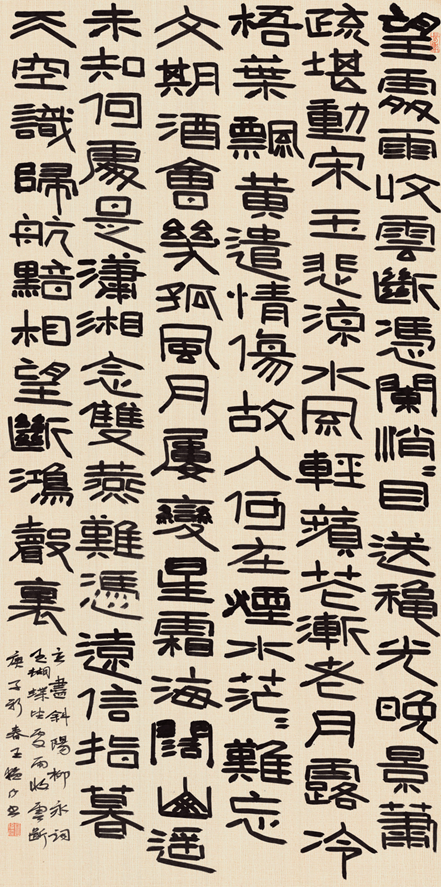 望處雨收雲斷憑闌悄〻目送穐光晚景蕭
疏堪動宋玉悲涼水風輕蘋花漸老月露冷
梧葉飄黃遣情傷故人何在煙水茫〻難忘
文期酒會幾孤風月屢變星霜海闊山遥
未知何處是瀟湘念雙燕難憑遠信指暮
天空識歸航黯相望斷鴻聲裏
立盡斜陽柳永詞
玉蝴蝶望處雨收雲斷
庚子新春王